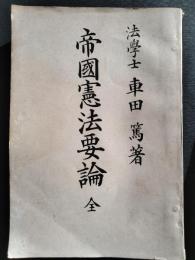 法學士 車田篤著
帝國憲法要論 全